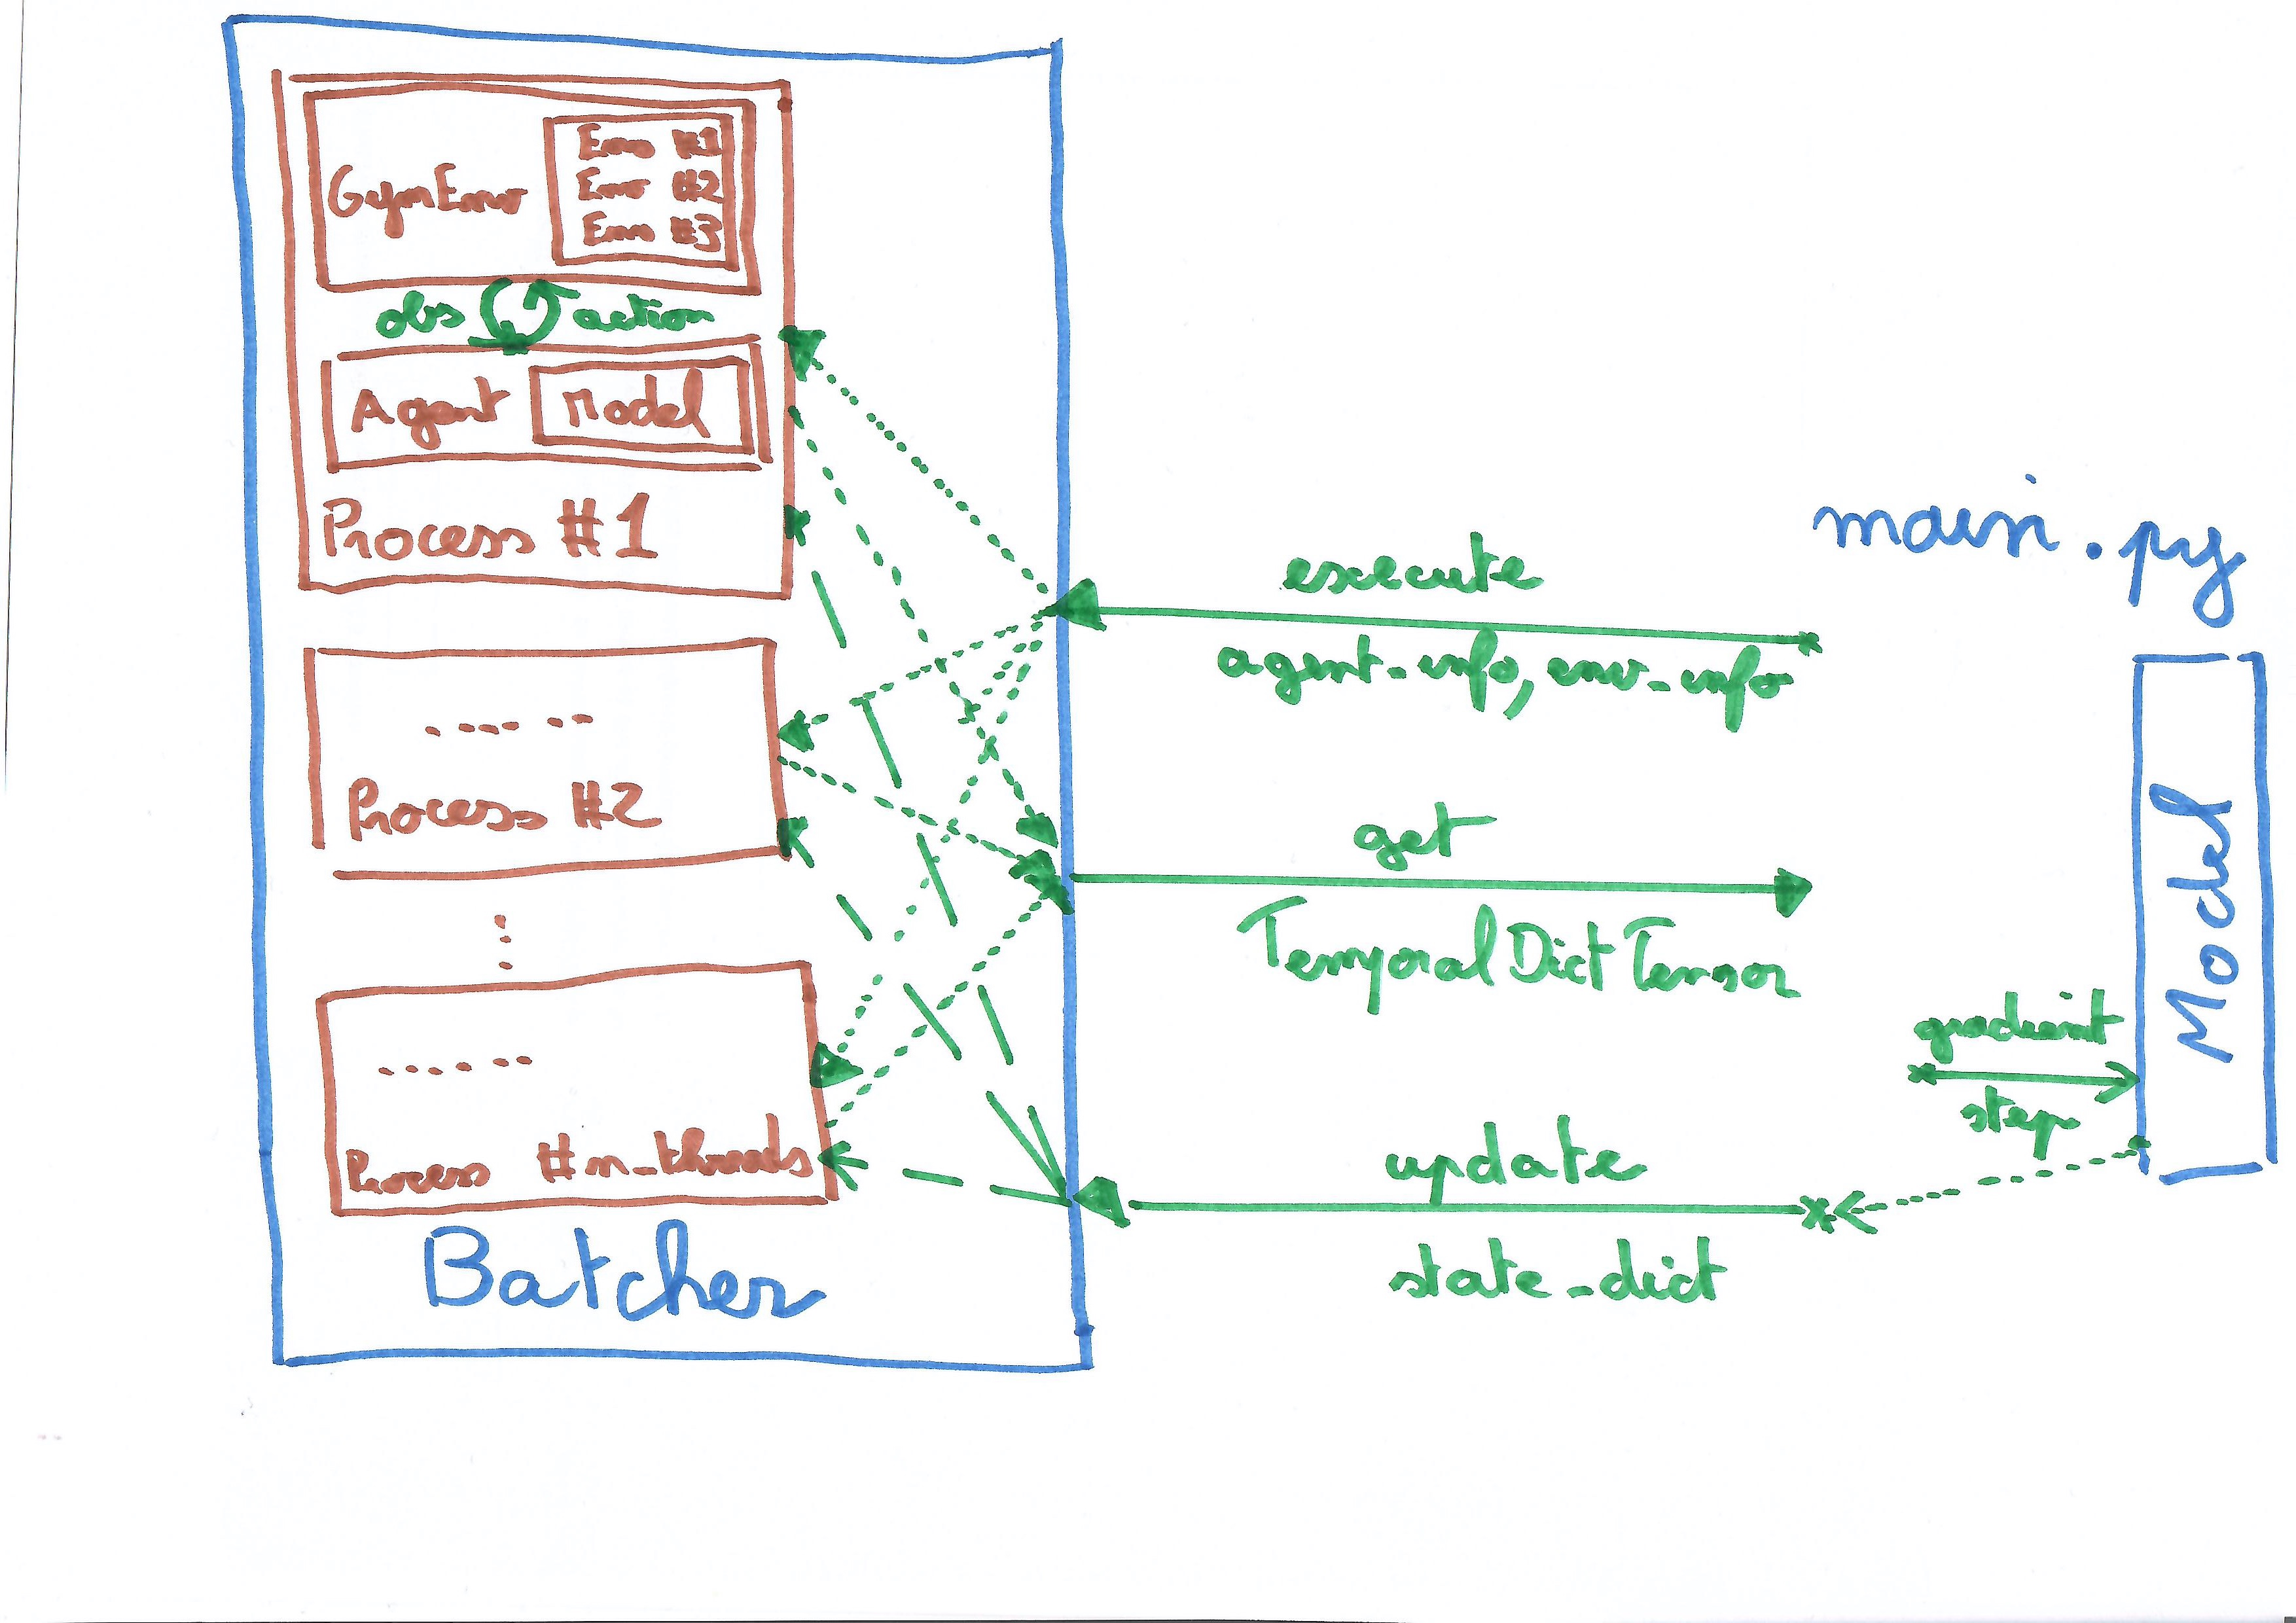 Env #1
GymEnv Env #2
Env #3
obs action
Agent Model
Process #1
Process #2
Process #n_threads
Batcher
main.py
execute
agent_info, env_info
get
TemporalDictTensor
gradient
step
update
state_dict
Model